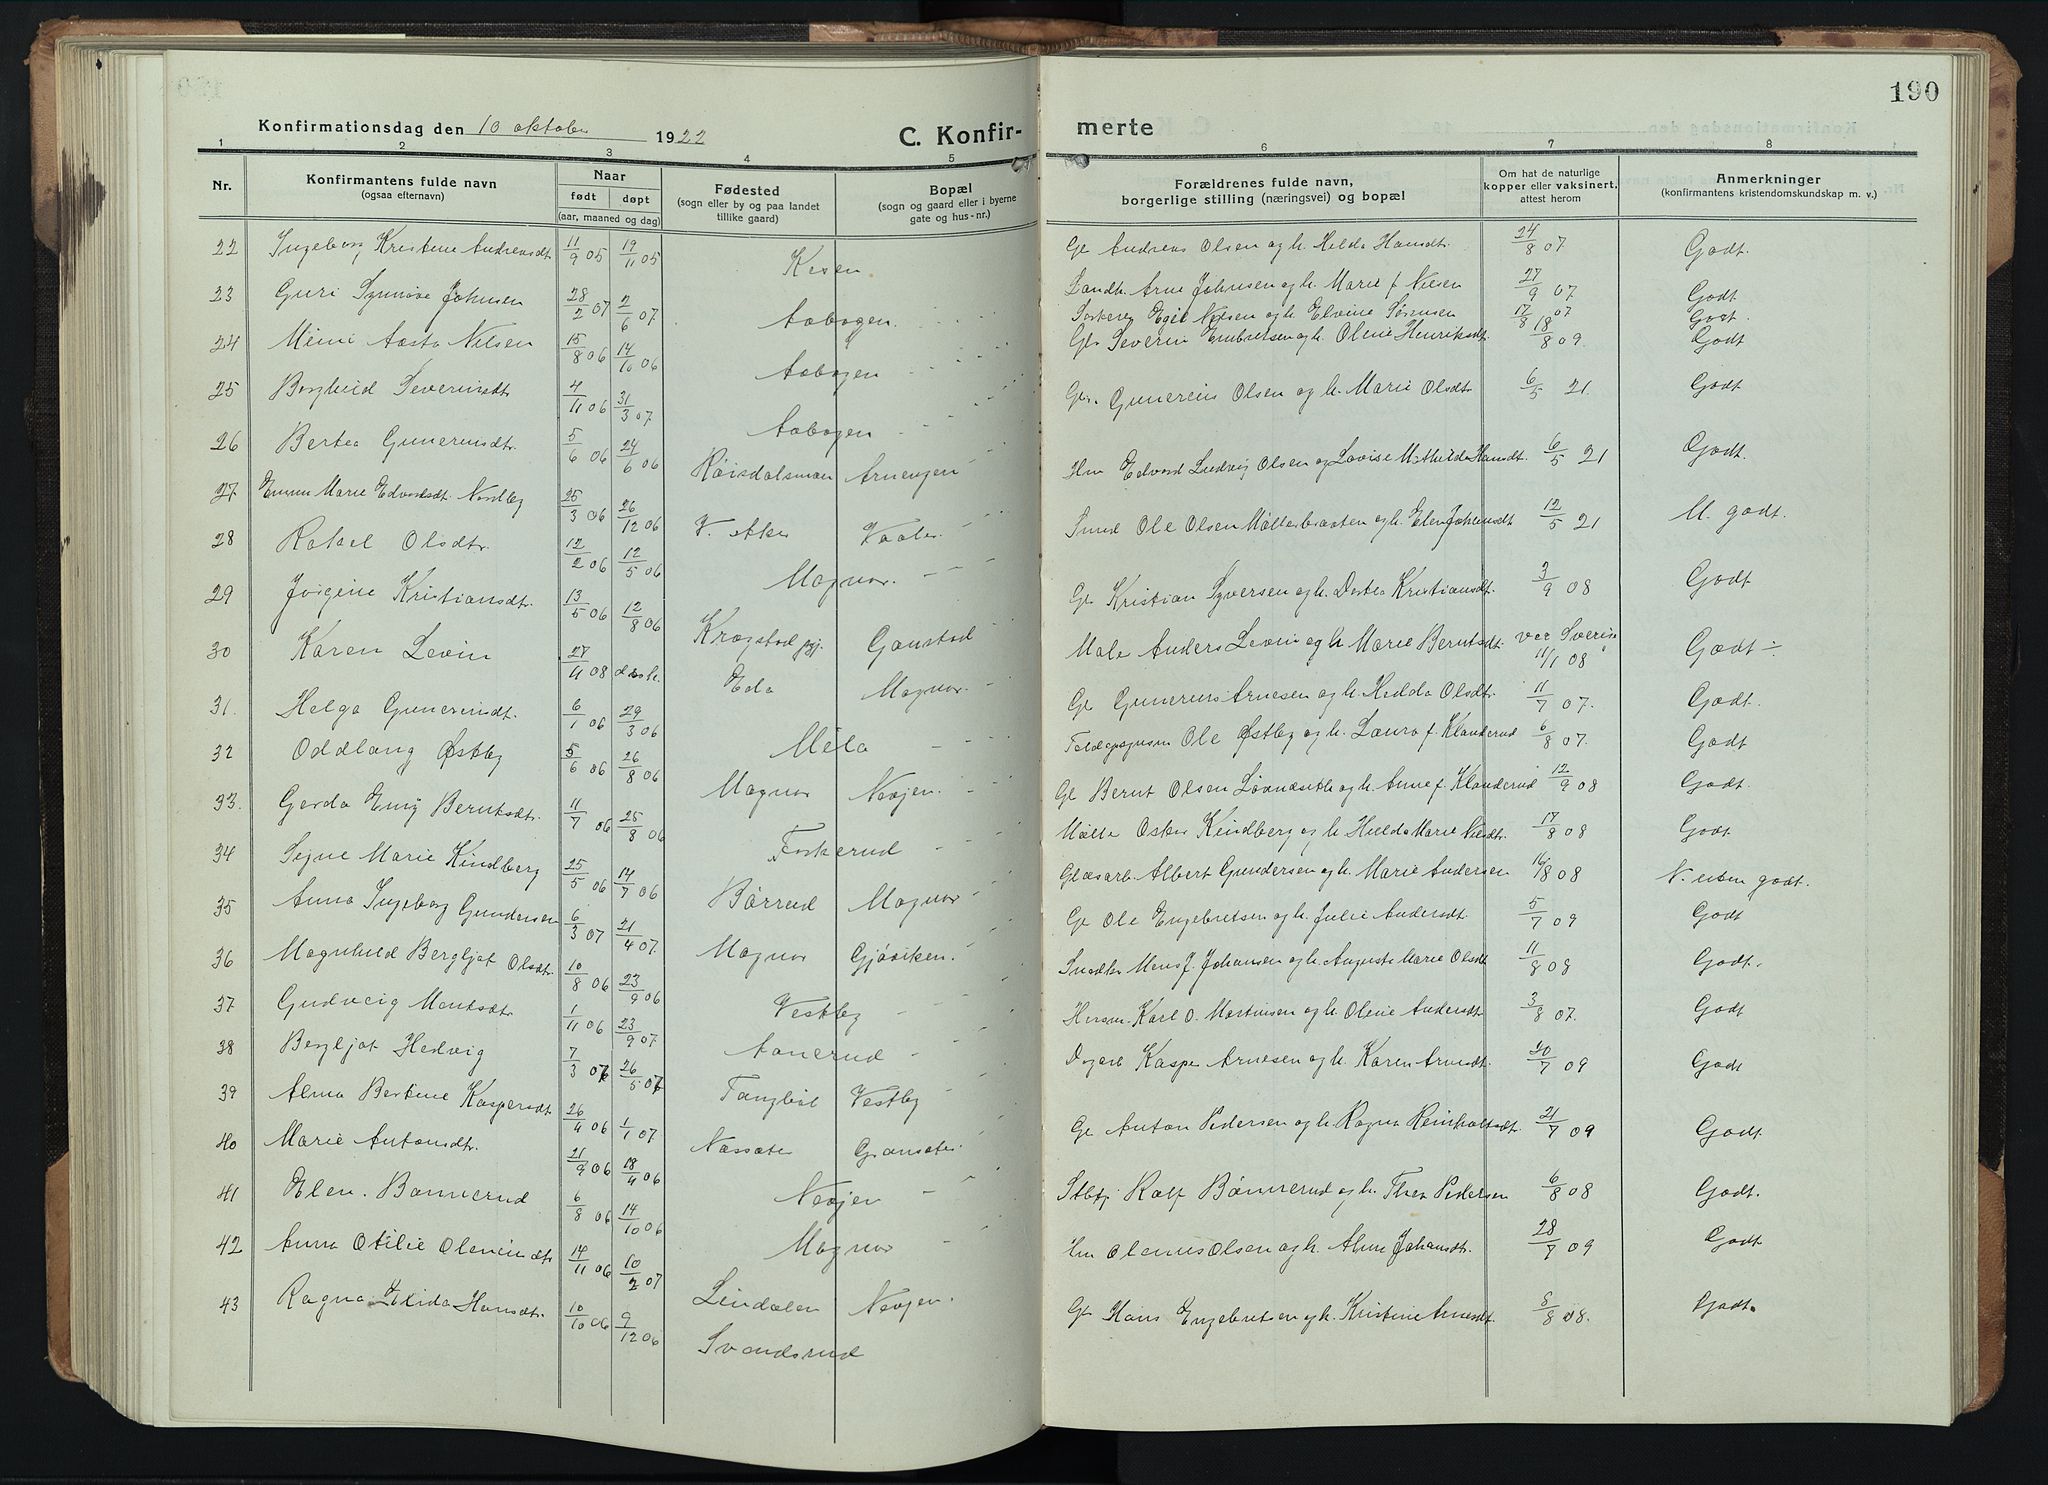 190
Konfirmationsdag den 10 oktober 1922
C. Konfirmerte
1 2 3 4 5 6 7 8
Nr. | Konfirmantens fulde navn (ogsaa efternavn) | Naar født døpt (aar, maaned og dag) | Fødested (sogn eller by og paa landet tillike gaard) | Bopæl (sogn og gaard eller i byerne gate og hus-nr.) | Forældrenes fulde navn, borgerlige stilling (næringsvei) og bopæl | Om hat de naturlige kopper eller vaksinert, attest herom | Anmerkninger (konfirmantens kristendomskundskap m. v.)
22 Ingeborg Kristine Andreasdt. 11/9 05 19/11 05 Gb Andreas Olsen og h. Helda Hansdt. 24/8 07 Godt.
23 Guri Synnøve Johnsen 28/2 07 2/6 07 Aabogen Landh. Arne Johnsen og h. Marie f. Nilsen 27/9 07 Godt
24 Mimi Aasta Nilsen 15/8 06 14/10 06 Aabogen Egil Nilsen og h. Elvine Sørensen 17/8 07 Godt
25 Borghild Severinsdt. 4/11 06 31/3 07 Aabogen Gb Severin Embretsen og h. Oline Henriksdt. 18/8 09. Godt
26 Bertea Gunerinsdt. 5/6 06 24/6 06 Røisdalsmoen Arnengen Gb. Gunerius Olsen og h. Marie Olsdt. 6/5 21. Godt
27 Emma Marie Edvardsdt. Nordby 25/3 06 26/12 06 V. Aker Vaaler Hm Edvard Ludvig Olsen og Lovise Mathilde Hansdt. 6/5 21 Godt.
28 Rakel Olsdtr. 12/2 06 12/5 06 Magnor. Smed Ole Olsen Møllerbraaten og h. Elen Johansdt 12/5 21 M. godt.
29 Jørgine Kristiansdt. 13/5 06 12/8 06 Kragstad Gaustad Gb Kristian Syversen og h. Dortea Kristiansdt. 3/9 08 Godt
30 Karen Levin 27/11 08 Eda Magnor. Male Anders Levin og h. Marie Berntsdt. vac Sverige 11/1 08 Godt ÷
31. Helga Gunerinsdt. 6/1 06 29/3 06 Gb Gunerius Arnesen og h. Hilda Olsdt. 11/7 07. Godt.
32 Oddlaug Østby 5/6 06 26/8 06 Magnor Nevjen. Ole Østby og h. Laura f. Klanderud 6/8 07. Godt
33. Gerda Emy Berntsdt. 11/7 06 25/8 06 Gb Bernt Olsen og h. Anne f. Klanderud 12/9 08 Godt.
34 Signe Marie Kindberg 25/5 06 14/7 06 Børrud Magnor Oskar Kindberg og h. Hulda Marie Nilsdt. 17/8 08 Godt
35 Anna Ingeborg Gundersen 6/3 07 21/4 07. Magnor Gjøviken. Glasarb. Albert Gundersen og h. Marie Andersen 16/8 08 N. uten godt.
36 Magnhild Bergljot Olsdt. 10/8 06 23/9 06 Vestby Gb Ole Engebretsen og h. Julie Andersdt. 5/7 09 Godt
37 Gudveig Montsdt. 1/11 06 23/9 07 Aanerud Mons J. Johansen og h. Augusta Marie Olsdt 11/8 08 Godt.
38 Bergljot Hedvig 7/3 07 26/5 07 Tangbøl Vestby Karl O. Martinsen og h. Oline Andersdt 3/8 07. Godt
39 Alma Bertine Kaspersdt 26/4 06 1/1 07 Dagarb Kasper Arnesen og h. Karen Arnesdt. 20/7 09 Godt
40 Marie Antonsdt. 21/9 06 18/4 06 Nevjen Gb Anton Pedersen og h. Ragna Reinholtsdt. 21/7 09 Godt.
41 Elen. Bønnerud 6/8 06 14/10 06 Magnor Stbtj Rolf Bønnerud og h. Thea Pedersen 6/8 08 Godt.
42 Anna Otilie Oleniusdt 14/11 06 10/2 07 Lindalen Nevjen. Hm Olenius Olsen og h. Alma Johansdt. 28/7 09 Godt
43 Ragna Elida Hansdt. 10/10 06 9/12 06 Svandsrud Gb Hans Engebretsen og h. Kristine Arnesdt. 8/8 08. Godt.